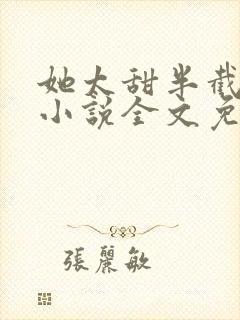 她太甜半截
小說全文免
張麗敏